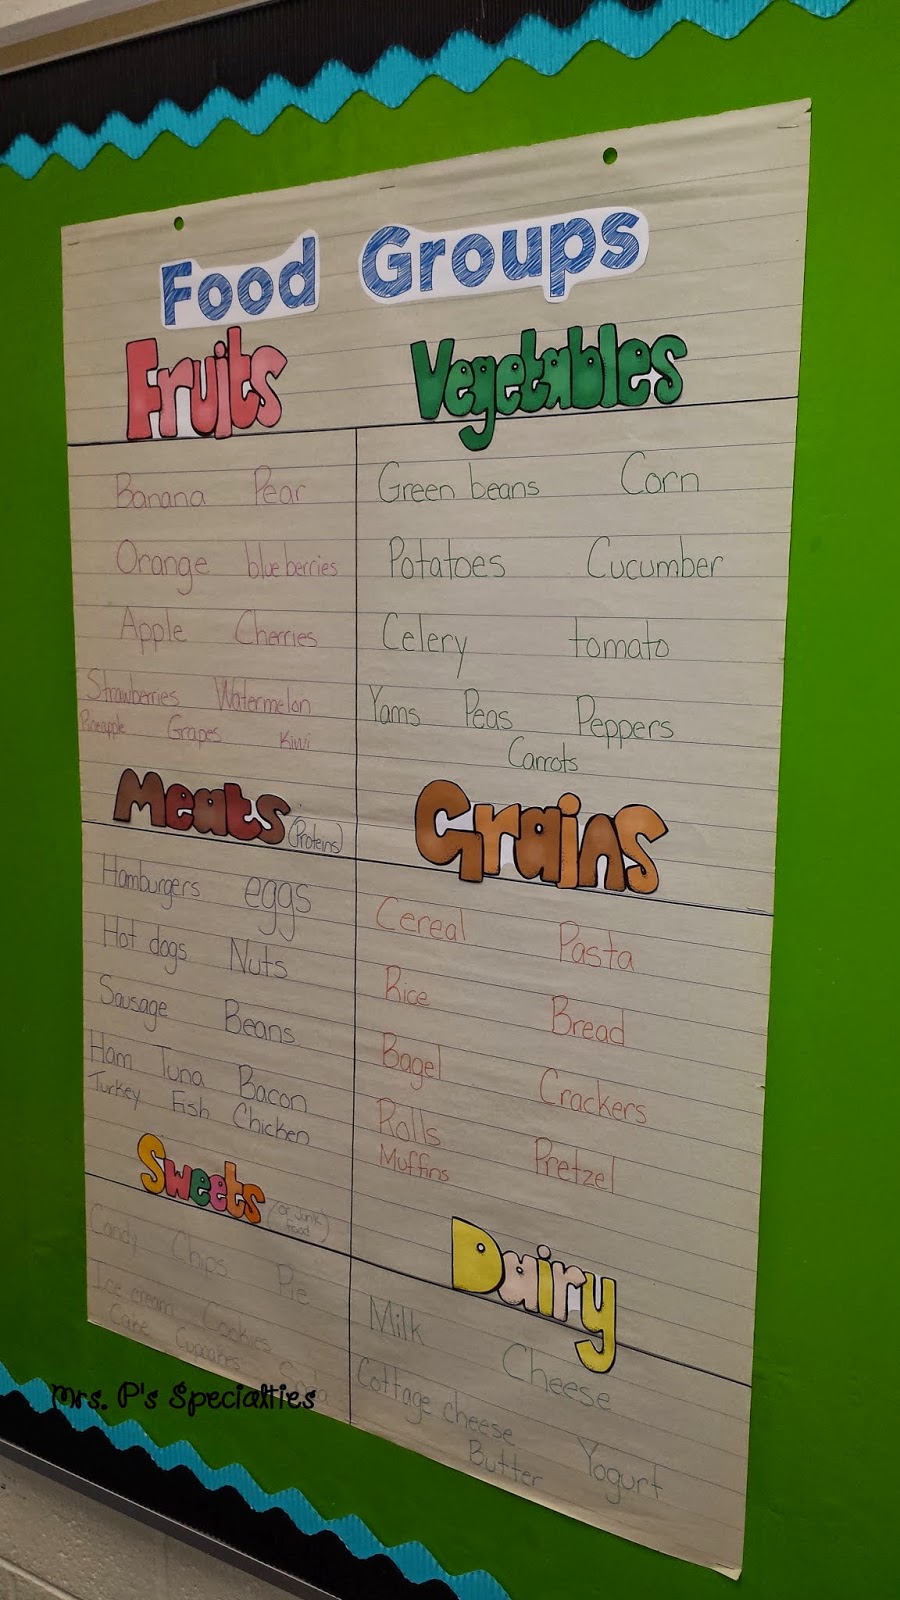 Food Groups
Fruits
Banana Pear
Orange blueberries
Apple Cherries
Strawberries Watermelon
Pineapple Grapes Kiwi
Vegetables
Green beans Corn
Potatoes Cucumber
Celery tomato
Yams Peas Peppers
Carrots
Meats (Proteins)
Hamburgers eggs
Hot dogs Nuts
Sausage Beans
Ham Tuna Bacon
Turkey Fish Chicken
Grains
Cereal Pasta
Rice Bread
Bagel Crackers
Rolls Pretzel
Muffins
Sweets (or junk food)
Candy Chips Pie
Ice cream Cookies
Cake Cupcakes
Dairy
Milk Cheese
Cottage cheese Yogurt
Butter
Mrs. P's Specialties